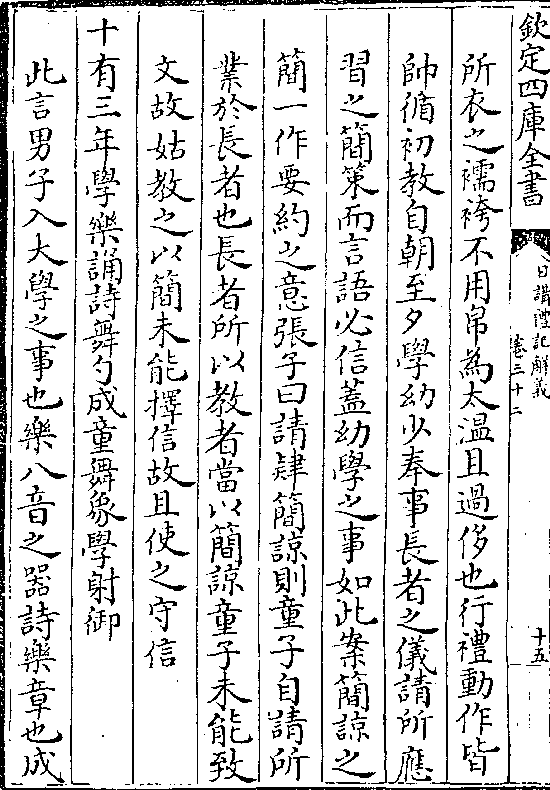 欽定四庫全書
日講禮記解義
卷三十二
十五
所衣之襦袴不用帛為太温且過侈也行禮動作皆
帥循初教自朝至夕學幼少奉事長者之儀請所應
習之簡策而言語必信蓋幼學之事如此案簡諒之
簡一作要約之意張子曰請肄簡諒則童子自請所
業於長者也長者所以教者當以簡諒童子未能致
文故姑教之以簡未能擇信故且使之守信
十有三年學樂誦詩舞勺成童舞象學射御
此言男子入大學之事也樂八音之器詩樂章也成